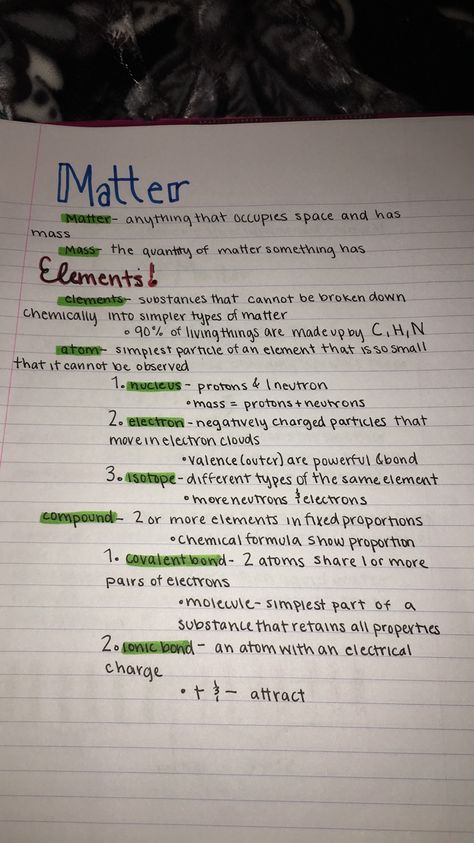 Matter
Matter- anything that occupies space and has
mass
Mass- the quantity of matter something has
Elements!
elements- substances that cannot be broken down
chemically into simpler types of matter
• 90% of living things are made up by C, H, N
atom- simplest particle of an element that is so small
that it cannot be observed
1. nucleus - protons & 1 neutron
• mass = protons + neutrons
2. electron - negatively charged particles that
move in electron clouds
• valence (outer) are powerful & bond
3. isotope - different types of the same element
• more neutrons & electrons
compound - 2 or more elements in fixed proportions
• chemical formula show proportion
1. covalent bond - 2 atoms share 1 or more
pairs of electrons
• molecule - simplest part of a
substance that retains all properties
2. ionic bond - an atom with an electrical
charge
• + & - attract